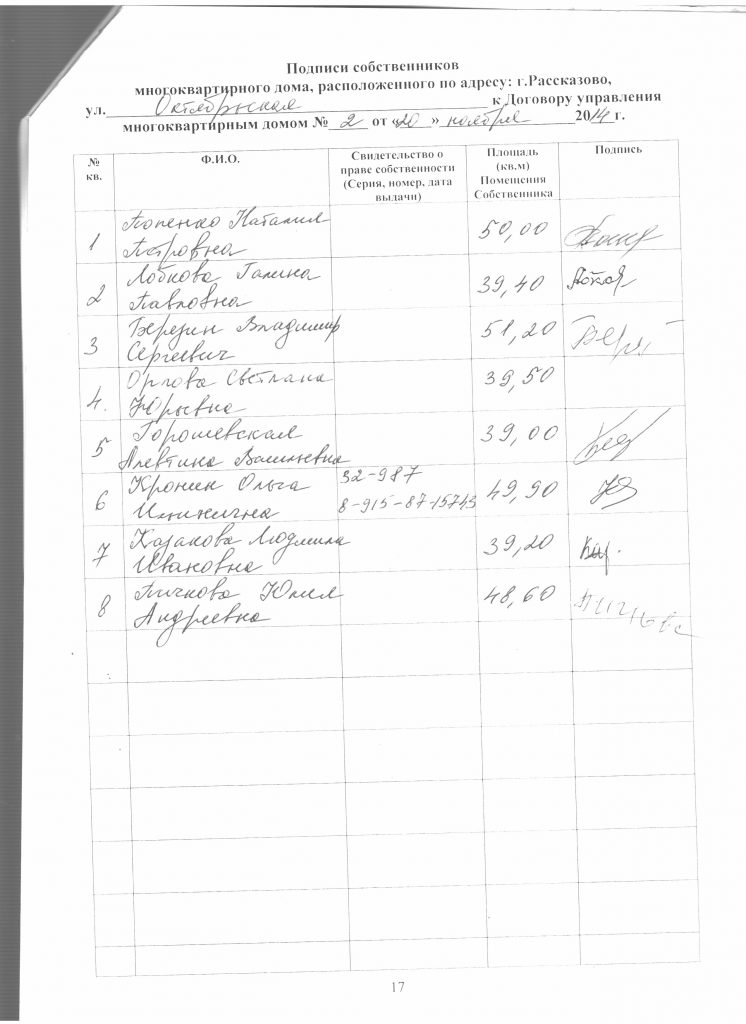 Подписи собственников
многоквартирного дома, расположенного по адресу: г.Рассказово,
ул. Октябрьская к Договору управления
многоквартирным домом № 2 от «20» ноября 2014 г.
№ кв. Ф.И.О. Свидетельство о праве собственности (Серия, номер, дата выдачи) Площадь (кв.м) Помещения Собственника Подпись
1 Попенко Наталия 50,00
Петровна
2 Лобкова Галина 39,40
Павловна
3 Березин Владимир 51,20
Сергеевич
4. Орлова Светлана 39,50
Юрьевна
5 Горошевская 39,00
Алевтина Васильевна
6 Кронин Ольга 32-987 49,90
8-915-87-15743
7 Казакова Людмила 39,20
Ивановна
8 Пичкова Юлия 48,60
Андреевна
17